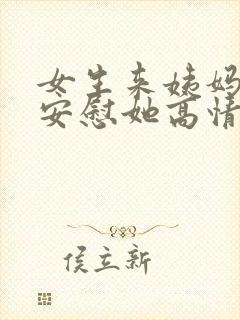 女生来姨妈
安慰她高情
侯立新